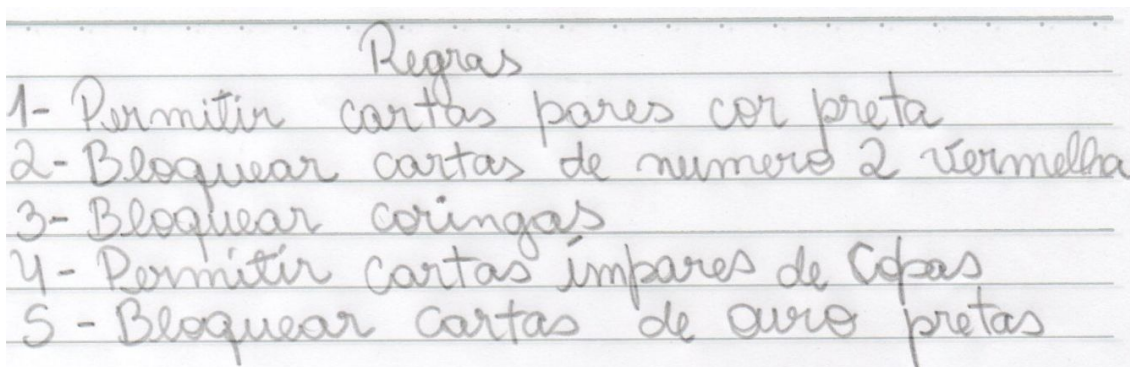 Regras
1- Permitir cartas pares cor preta
2- Bloquear cartas de numero 2 vermelha
3- Bloquear coringas
4- Permitir cartas ímpares de Copas
5- Bloquear cartas de ouro pretas